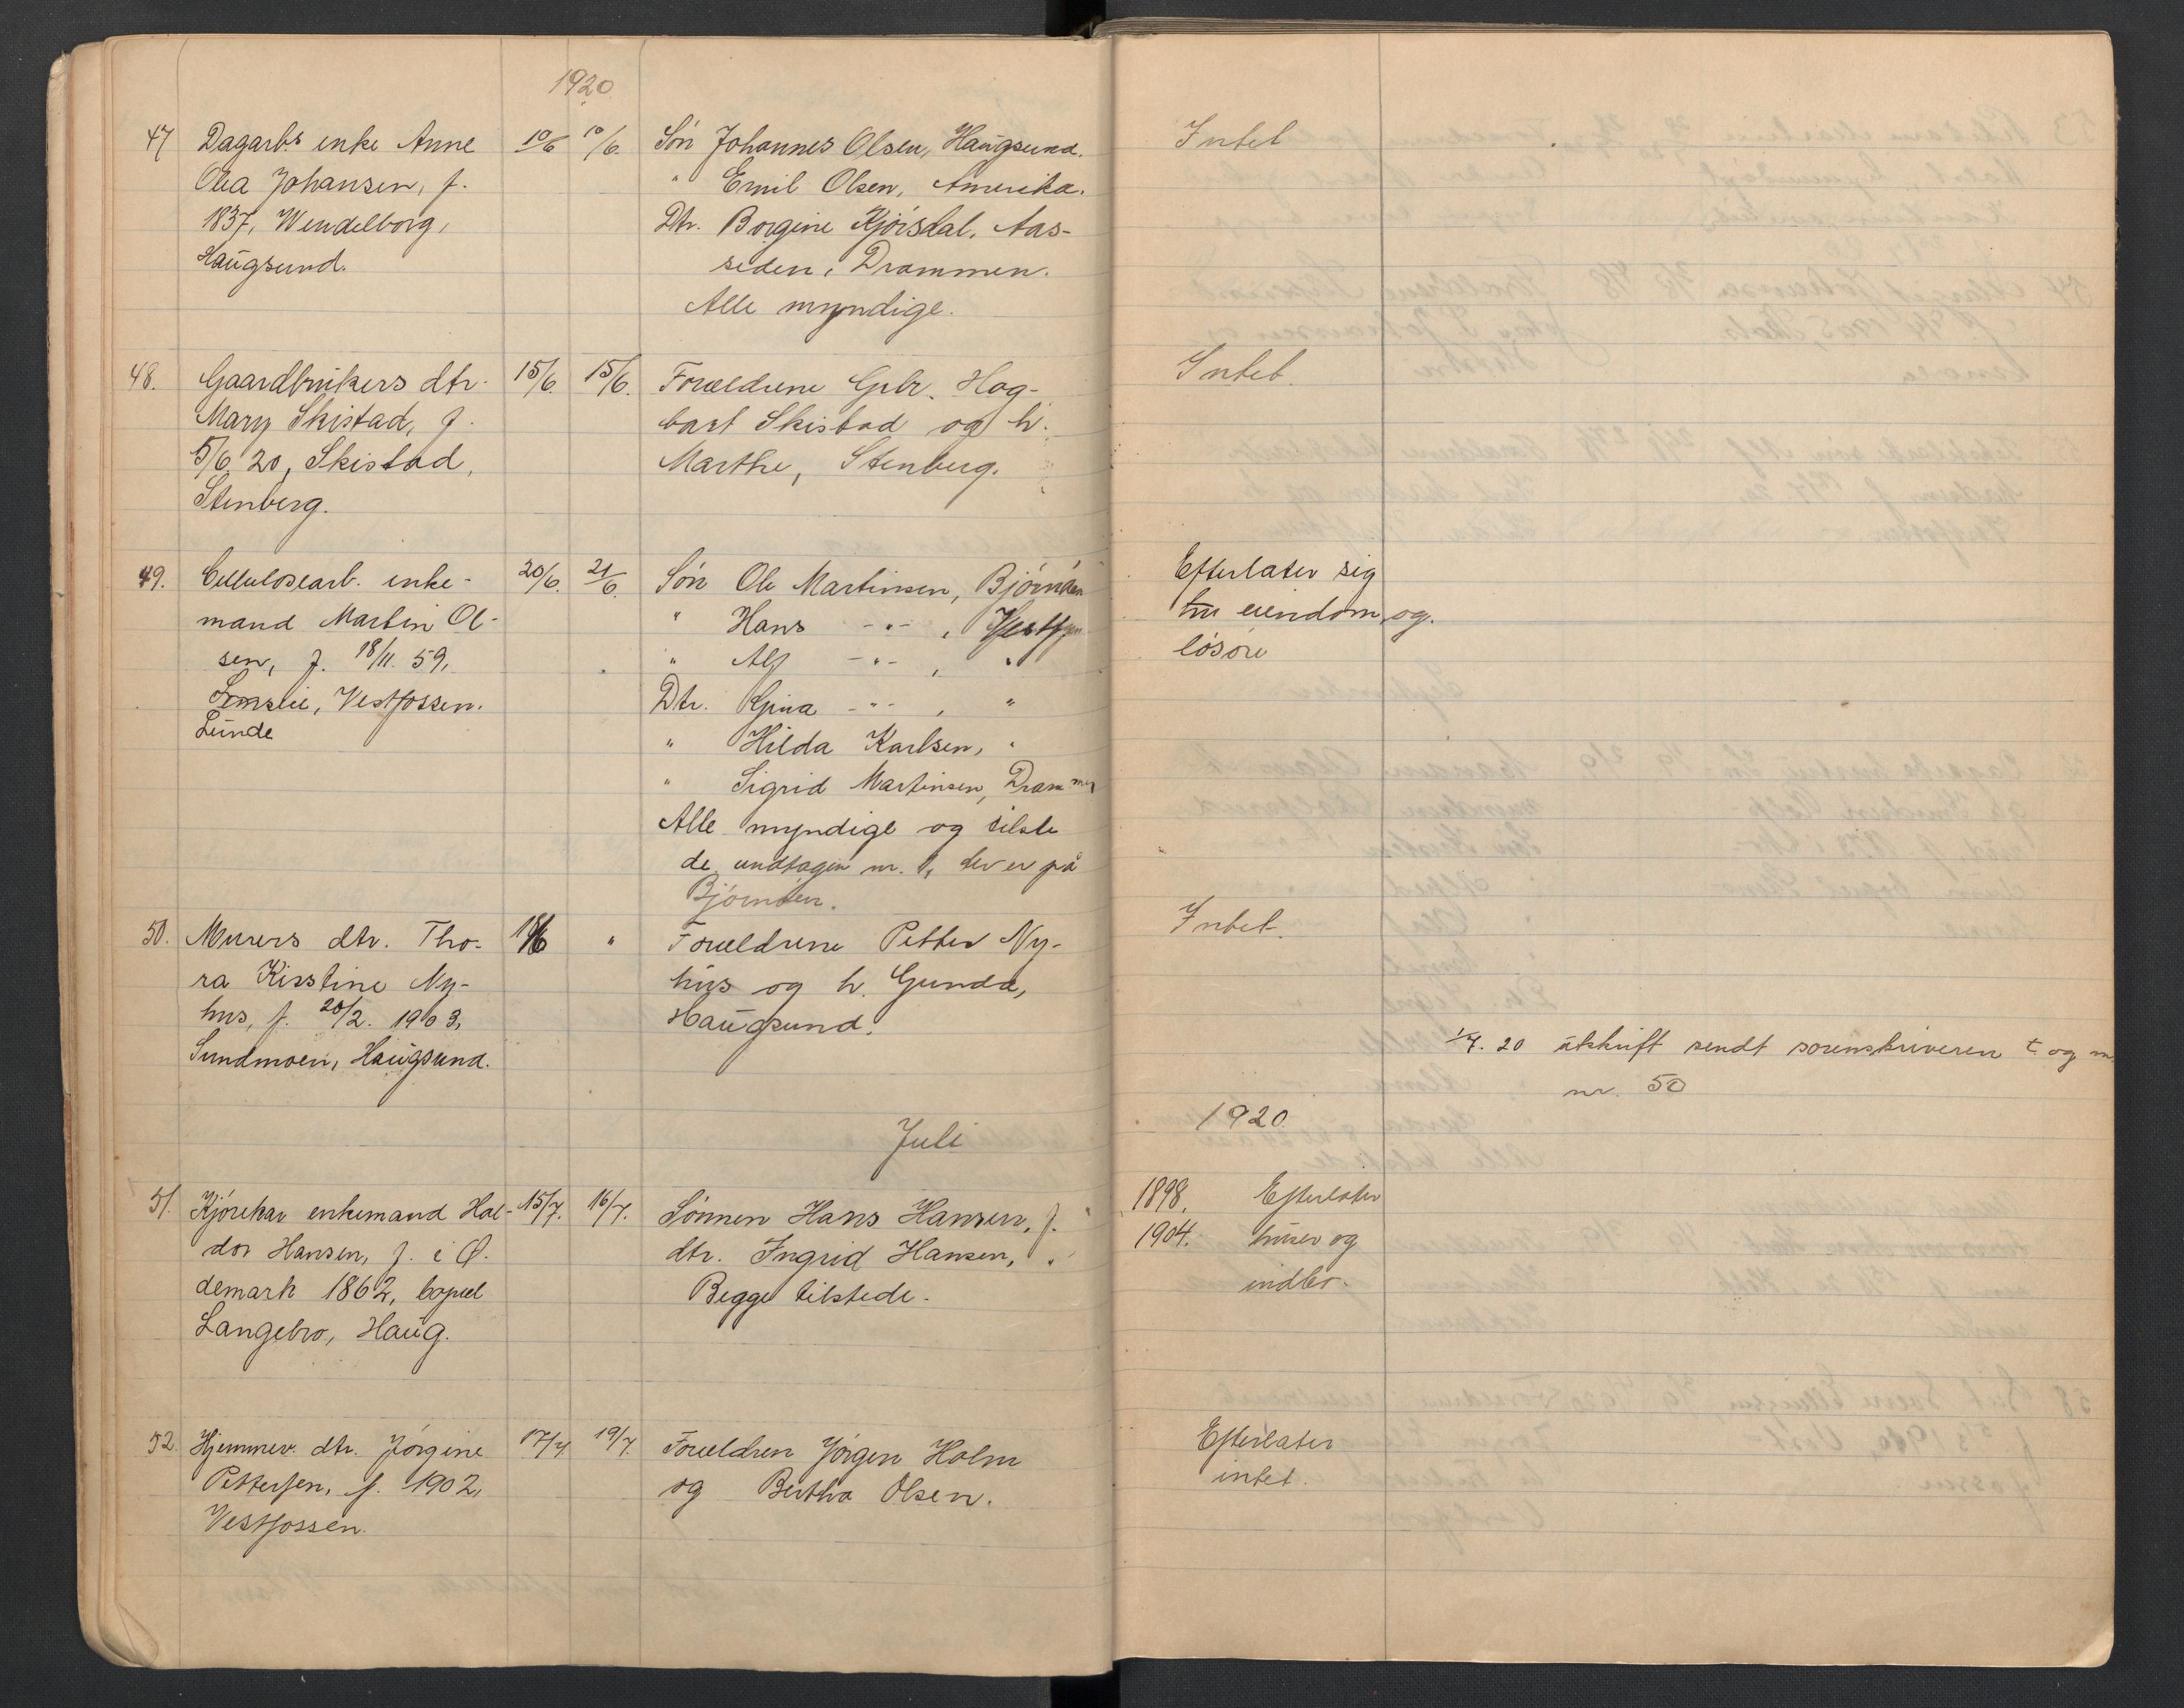 1920
47 Dagarbs enke Anne 10/6 10/6. Søn Johannes Olsen, Haugsund. Intet
Olea Johansen, f. " Emil Olsen, Amerika.
1837, Wendelborg, Dtr. Borgine Kjørsdal, Aas-
Haugsund. siden, Drammen.
Alle myndige.
48. Gaardbrukers dtr. 15/6. 15/6. Forældrene Gbr. Hag- Intet.
Mary Skistad, f. bart Skistad og h.
5/6. 20, Skistad, Marthe, Stenberg.
Stenberg.
49. Cellulosearb. enke- 20/6. 21/6. Søn Ole Martinsen, Efterlater sig
mand Martin Ol- " Hans -"- , eiendom og
sen, f. 18/11. 59, " Alf -"- , " løsøre
Vestfossen. Dtr. -"- , "
Lunde " Hilda Karlsen, "
" Sigrid Martinsen, Drammen
Alle myndige og tilste
de, undtagen nr. 1, der er på
Bjørnøen.
50. Murers dtr. Tho- " Forældrene Petter Ny- Intet.
ra Kirstine Ny- hus og h. Gunda,
hus, f. 20/2. 1903, Haugsund.
Sundmoen, Haugsund. 1/7. 20 utskrift sendt sorenskriveren t. og m
nr. 50
1920
Juli
51. Kjørekar enkemand Hal- 15/7. 16/7. Sønnen Hans Hansen, f. 1898. Efterlater
dor Hansen, f. i Ø. dtr. Ingrid Hansen, " 1904. huser og
demark 1862, bopæl Begge tilstede. indbo.
Langebro, Haug.
52. Hjemmev. dtr. Jørgine 17/7 19/7. Forældren Jørgen Holm Efterlater
Pettersen, f. 1902, og Bertha Olsen. intet.
Vestfossen.